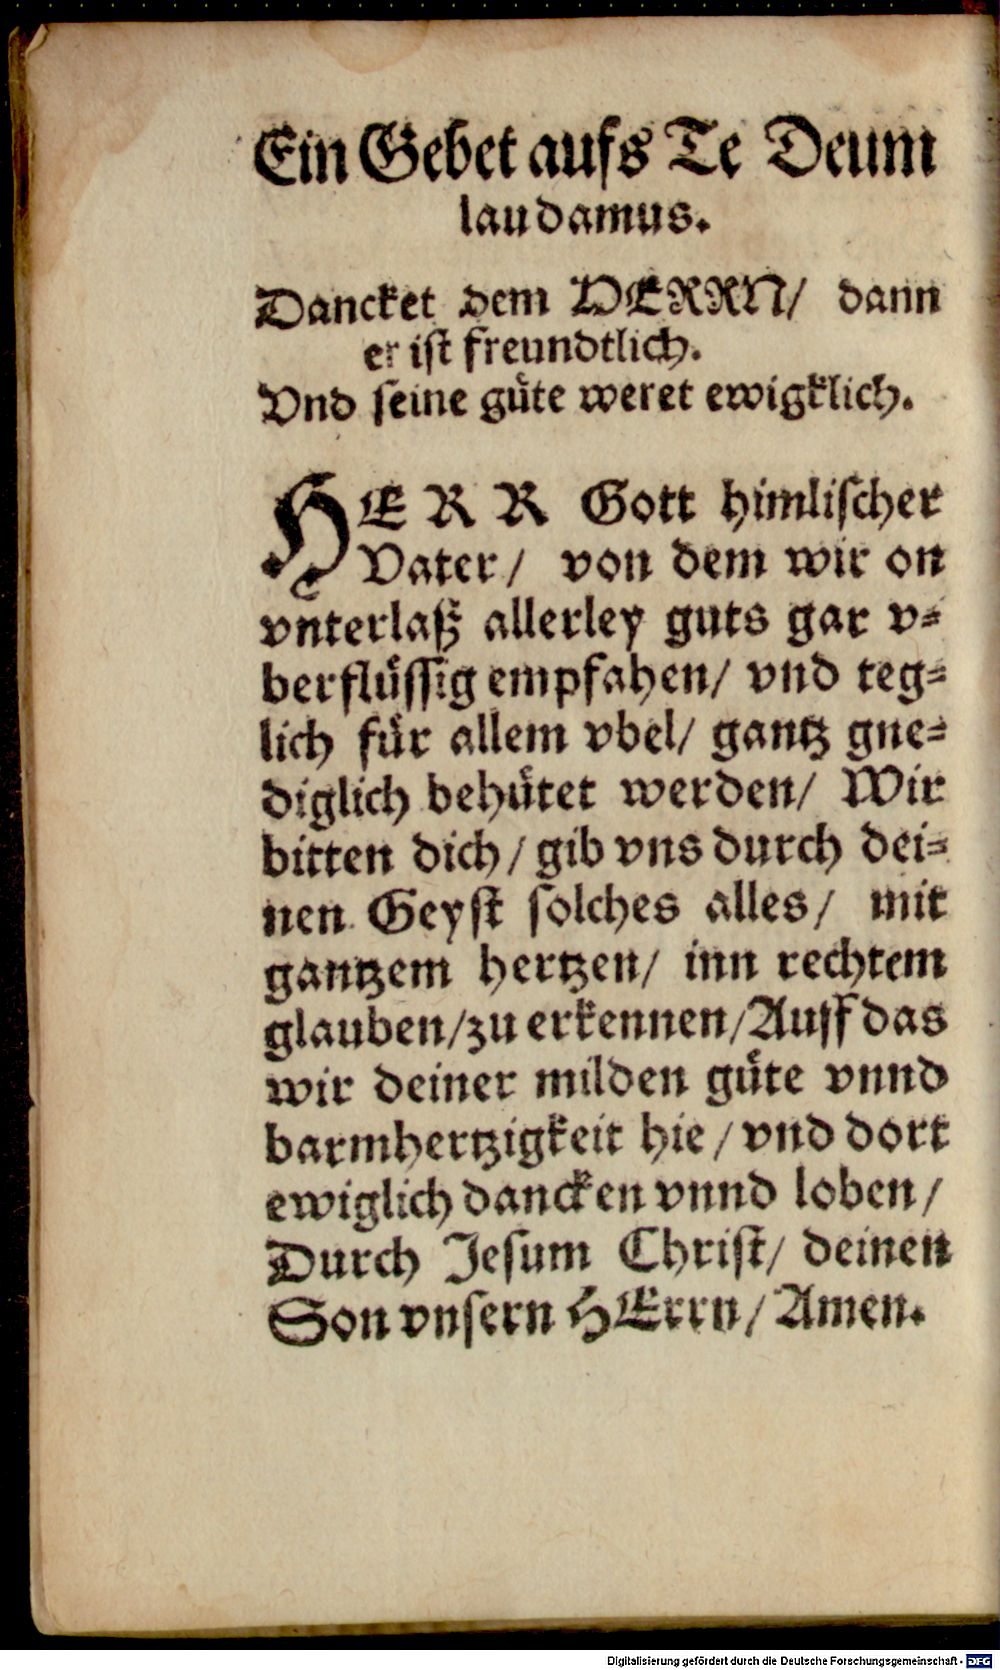 Ein Gebet aufs Te Deum
laudamus.
Dancket dem HERRN/ dann
er ist freundtlich.
Vnd seine güte weret ewigklich.
HERR Gott himlischer
Vater/ von dem wir on
vnterlaß allerley guts gar v=
berflüssig empfahen/ vnd teg=
lich für allem vbel/ gantz gne=
diglich behütet werden/ Wir
bitten dich/ gib vns durch dei=
nen Geyst solches alles/ mit
gantzem hertzen/ inn rechtem
glauben/ zu erkennen/ Auff das
wir deiner milden güte vnnd
barmhertzigkeit hie/ vnd dort
ewiglich dancken vnnd loben/
Durch Jesum Christ/ deinen
Son vnsern HErrn/ Amen.
Digitalisierung gefördert durch die Deutsche Forschungsgemeinschaft - DFG